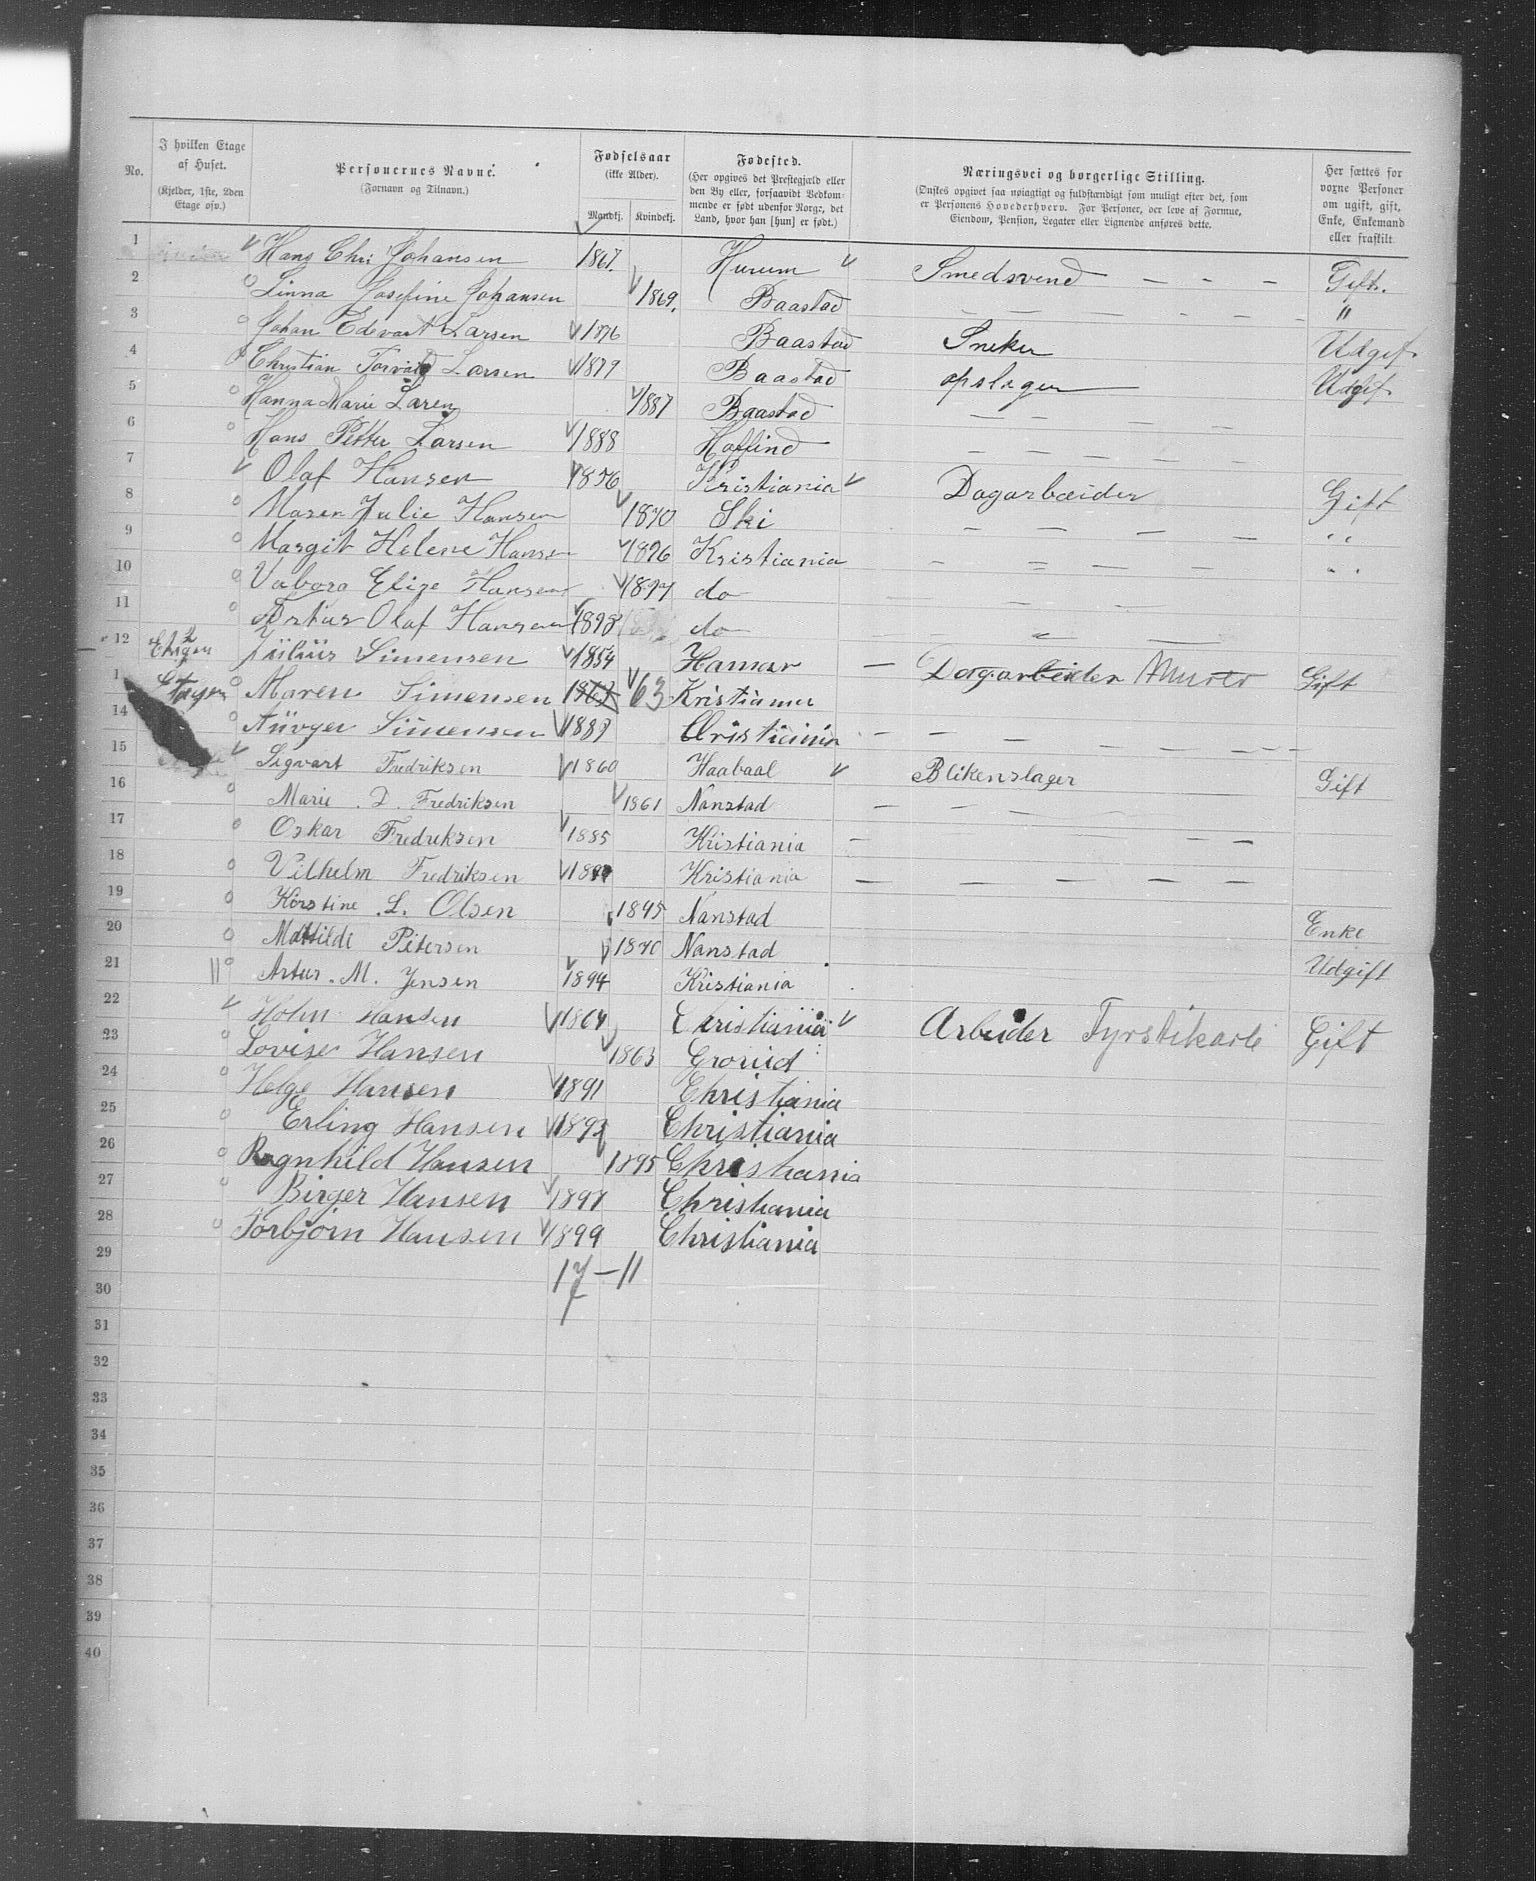 No. I hvilken Etage af Huset. (Kjelder, 1ste, 2den Etage osv.) Personernes Navne. (Fornavn og Tilnavn.) Fødselsaar (ikke Alder). Mandkj. Kvindekj. Fødested. (Her opgives det Prestegjæld eller den By eller, forsaavidt Vedkommende er født udenfor Norge, det Land, hvor han [hun] er født.) Næringsvei og borgerlige Stilling. (Ønskes opgivet saa nøiagtigt og fuldstændigt som muligt efter det, som er Personens Hovederhverv. For Personer, der leve af Formue, Eiendom, Pension, Legater eller Lignende anføres dette. Her sættes for voxne Personer om ugift, gift, Enke, Enkemand eller fraskilt.
1 Hans Chr. Johansen 1867. Hurum Smedsvend — - - Gift.
2 Linna Josefine Johansen 1869. Baastad — — — - - "
3 Johan Edevart Larsen 1876 Baastad Sneker Udgif.
4 Christian Torvald Larsen 1879 Baastad opslager Udgif.
5 Hanna Marie Laren 1887 Baastad — — — —
6 Hans Petter Larsen 1888 Haffind — — — — —
7 Olaf Hansen 1856 Kristiania Dagarbeider Gift
8 Maren Julie Hansen 1870 Ski — — — — "
9 Margit Helene Hansen 1896 Kristiania — — — — "
10 Vaborg Elize Hansen 1897 do — — —
11 Artur Olaf Hansen 1898 do — — —
12 2 Etagen Jülius Simensen 1854 Hamar — Dagarbeider Murer Gift
Etagen Maren Simensen 1863 63 Kristiania
14 Simensen 1883 Cristiania — — — — — —
15 Sigvart Fredriksen 1860 Haabaal Blikenslager Gift
16 Marie . D . Fredriksen 1861 Nanstad — —
17 Oskar Fredriksen 1885 Kristiania — — —
18 Vilhelm Fredriksen Kristiania — — — — —
19 Kirstine . L. Olsen 1845 Nanstad Enke
20 Matilde Petersen 1870 Nanstad Udgift
21 Artur . M. Jensen 1894 Kristiania
22 Holm Hansen 1864 Cristiania Arbeider Fyrstikarb Gift
23 Lovise Hansen 1863 Grorud
24 Helge Hansen 1891 Christiania
25 Erling Hansen 1893 Christiania
26 Ragnhild Hansen 1895 Christiania
27 Birger Hansen 1897 Christiania
28 Torbjørn Hansen 1899 Christiania
29 17 — 11
30
31
32
33
34
35
36
37
38
39
40